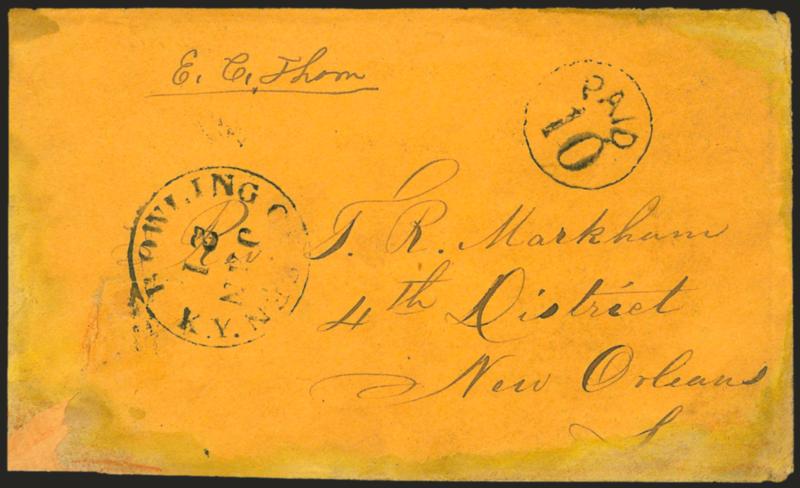 E. C. Thom
PAID
10
BOWLING GREEN
KY.
JAN
18
Rev T. R. Markham
4th District
New Orleans